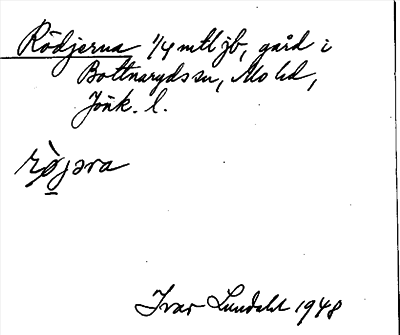 Rödjerna 1/4 mtl jb, gård i
Bottnaryds sn, Mo hd,
Jönk. l.
rö̀jəra
Ivar Lundahl 1948